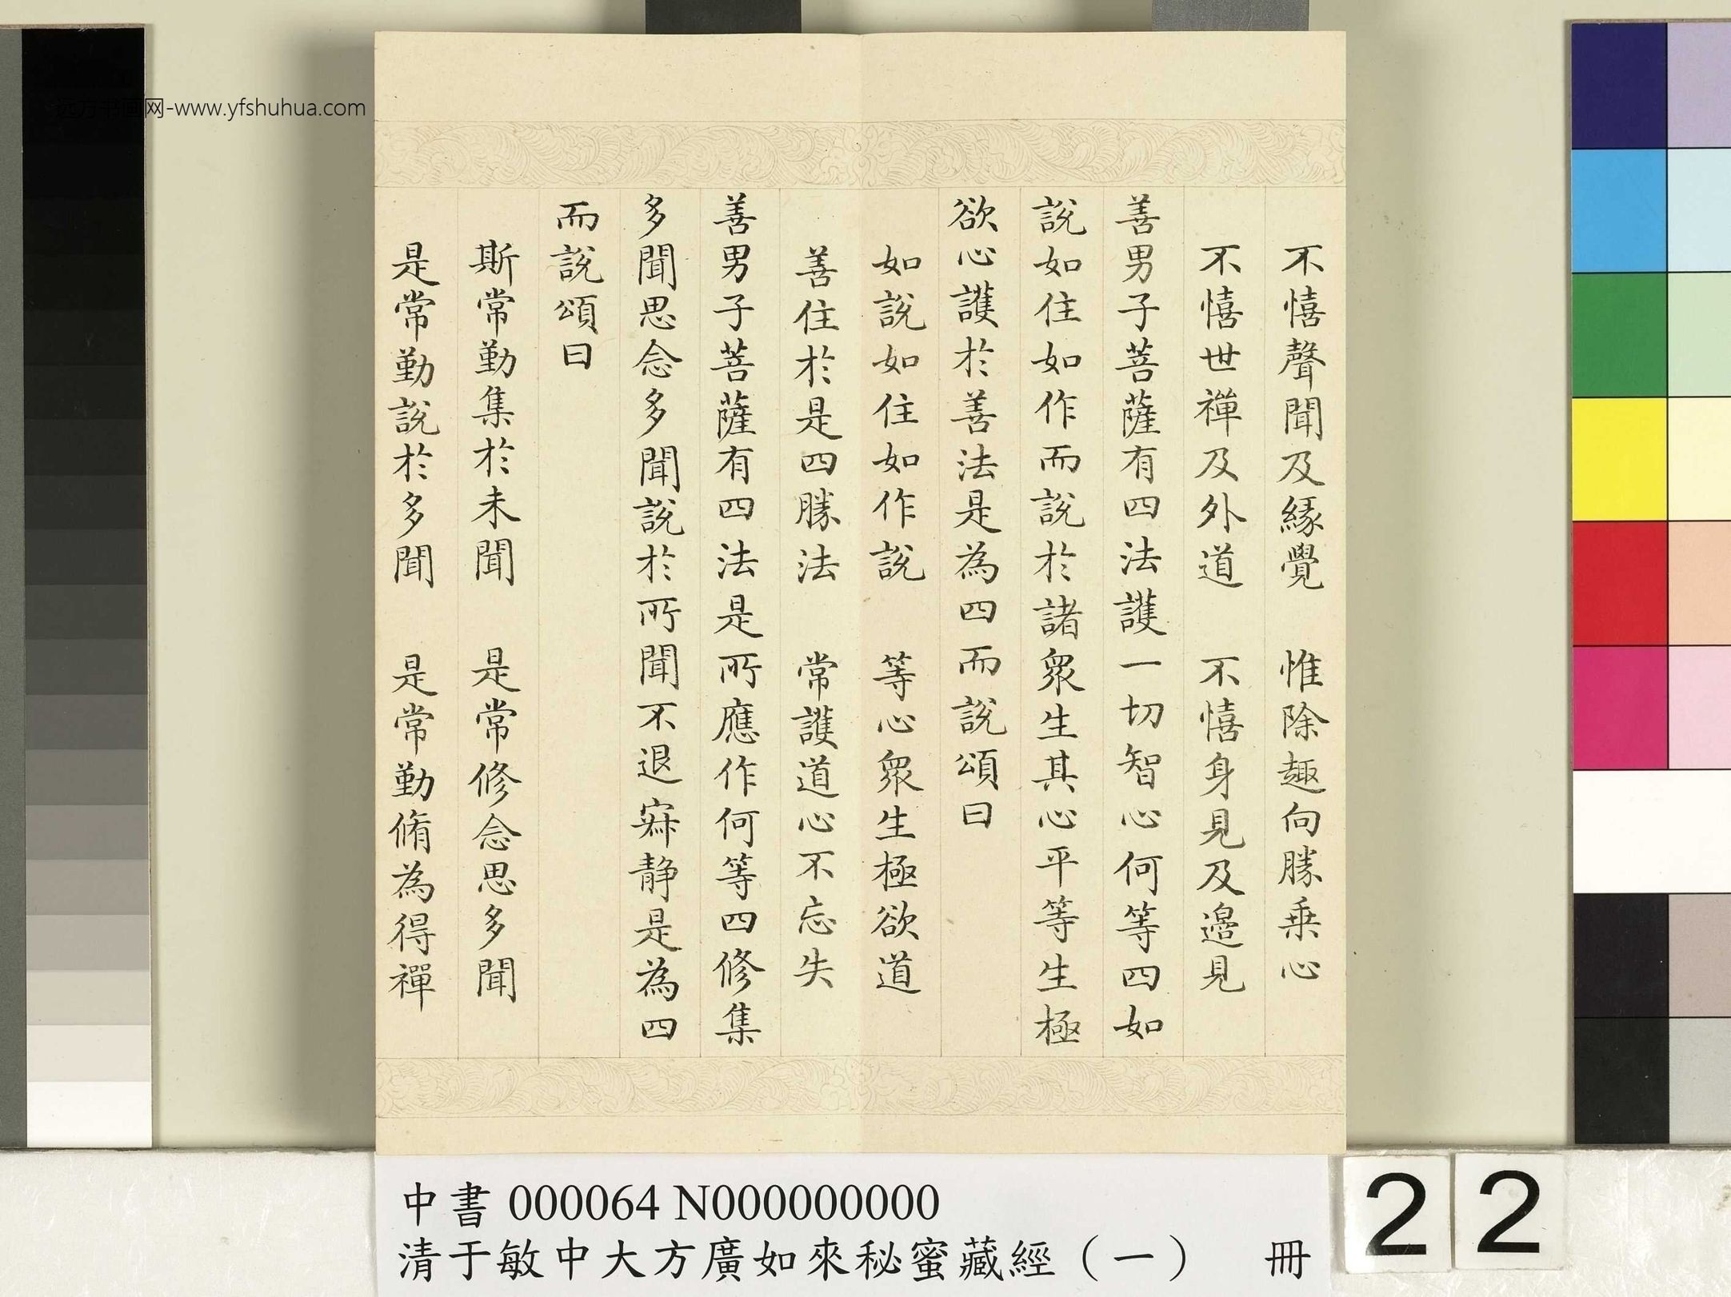 不憘聲聞及緣覺　惟除趣向勝乗心
不憘世禪及外道　不憘身見及邊見
善男子菩薩有四法護一切智心何等四如
說如住如作而說於諸衆生其心平等生極
欲心護於善法是為四而說頌曰
如說如住如作說　等心衆生極欲道
善住於是四勝法　常護道心不忘失
善男子菩薩有四法是所應作何等四修集
多聞思念多聞說於所聞不退寂静是為四
而說頌曰
斯常勤集於未聞　是常修念思多聞
是常勤說於多聞　是常勤脩為得禪
中書 000064 N000000000
清于敏中大方廣如來秘蜜藏經（一）　冊
22
网-www.yfshuhua.com